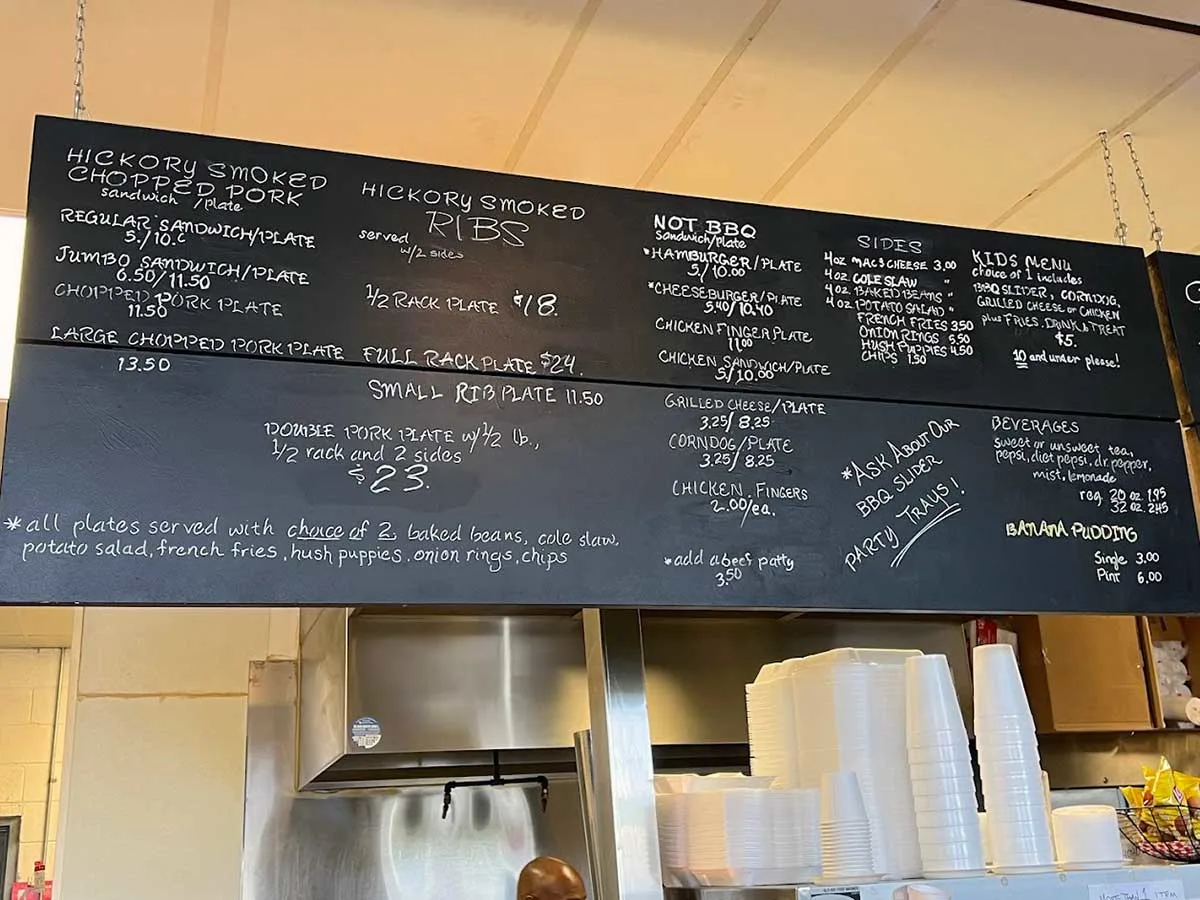 HICKORY SMOKED
CHOPPED PORK
sandwich /plate
REGULAR SANDWICH/PLATE
5./10.
JUMBO SANDWICH/PLATE
6.50/11.50
CHOPPED PORK PLATE
11.50
LARGE CHOPPED PORK PLATE
13.50
HICKORY SMOKED
RIBS
served
w/2 sides
1/2 RACK PLATE $18.
FULL RACK PLATE $24.
SMALL RIB PLATE 11.50
DOUBLE PORK PLATE w/ 1/2 lb.,
1/2 rack and 2 sides
$23.
*all plates served with choice of 2 baked beans, cole slaw,
potato salad, french fries, hush puppies, onion rings, chips
NOT BBQ
sandwich/plate
*HAMBURGER/PLATE
5/10.00
*CHEESEBURGER/PLATE
5.40/10.40
CHICKEN FINGER PLATE
11.00
CHICKEN SANDWICH/PLATE
5/10.00
GRILLED CHEESE/PLATE
3.25/8.25
CORNDOG/PLATE
3.25/8.25
CHICKEN FINGERS
2.00/ea.
*add a beef patty
3.50
SIDES
4oz MAC & CHEESE 3.00
4oz COLE SLAW "
4oz BAKED BEANS "
4oz POTATO SALAD "
FRENCH FRIES 3.50
ONION RINGS 5.50
HUSH PUPPIES 4.50
CHIPS 1.50
*ASK ABOUT OUR
BBQ SLIDER
PARTY TRAYS!
KIDS MENU
choice of 1 includes
BBQ SLIDER, CORNDOG,
GRILLED CHEESE or CHICKEN
plus FRIES, DRINK & TREAT
$5.
10 and under please!
BEVERAGES
sweet or unsweet tea,
pepsi, diet pepsi, dr. pepper,
mist, lemonade
reg. 20 oz 1.95
32 oz. 2.45
BANANA PUDDING
Single 3.00
Pint 6.00
MORE THAN 1 ITEM